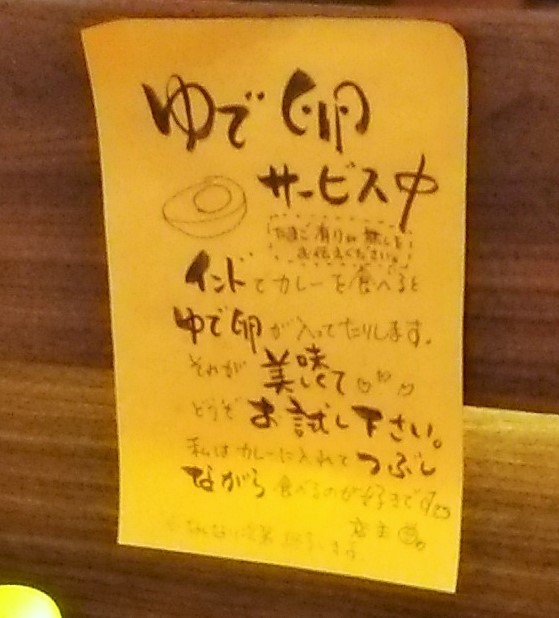 ゆで卵
サービス中
たまご有りか無しを
お伝えください。
インドでカレーを食べると
ゆで卵が入ってたりします。
それが美味しくて
どうぞお試し下さい。
私はカレーに入れてつぶし
ながら食べるのが好きです
店主